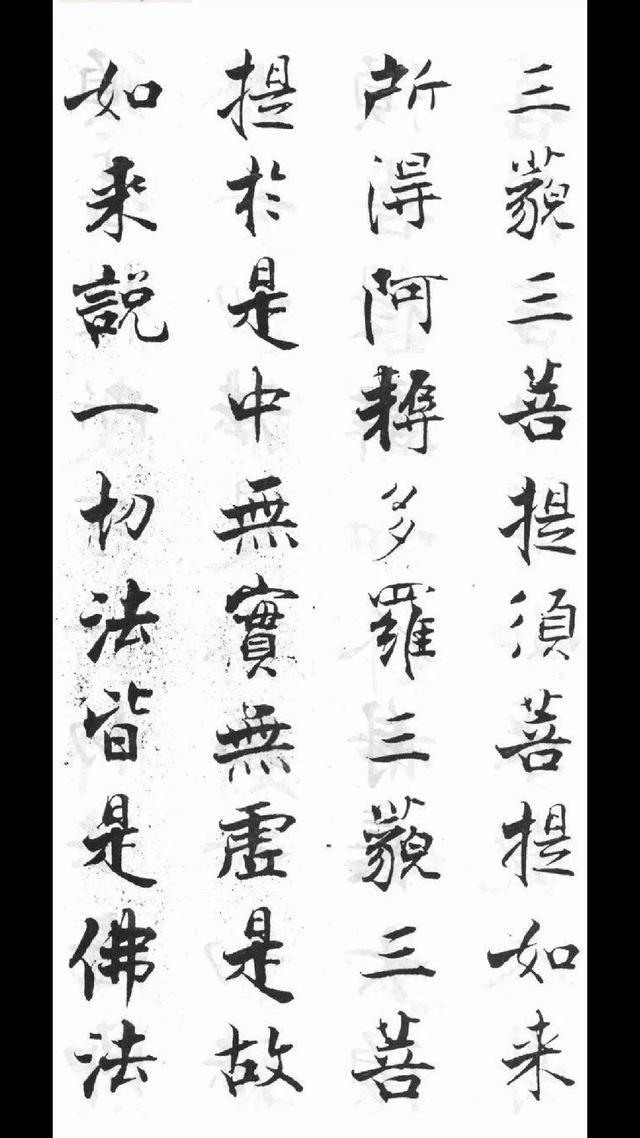 三藐三菩提須菩提如来
所得阿耨多羅三藐三菩
提於是中無實無虛是故
如来説一切法皆是佛法